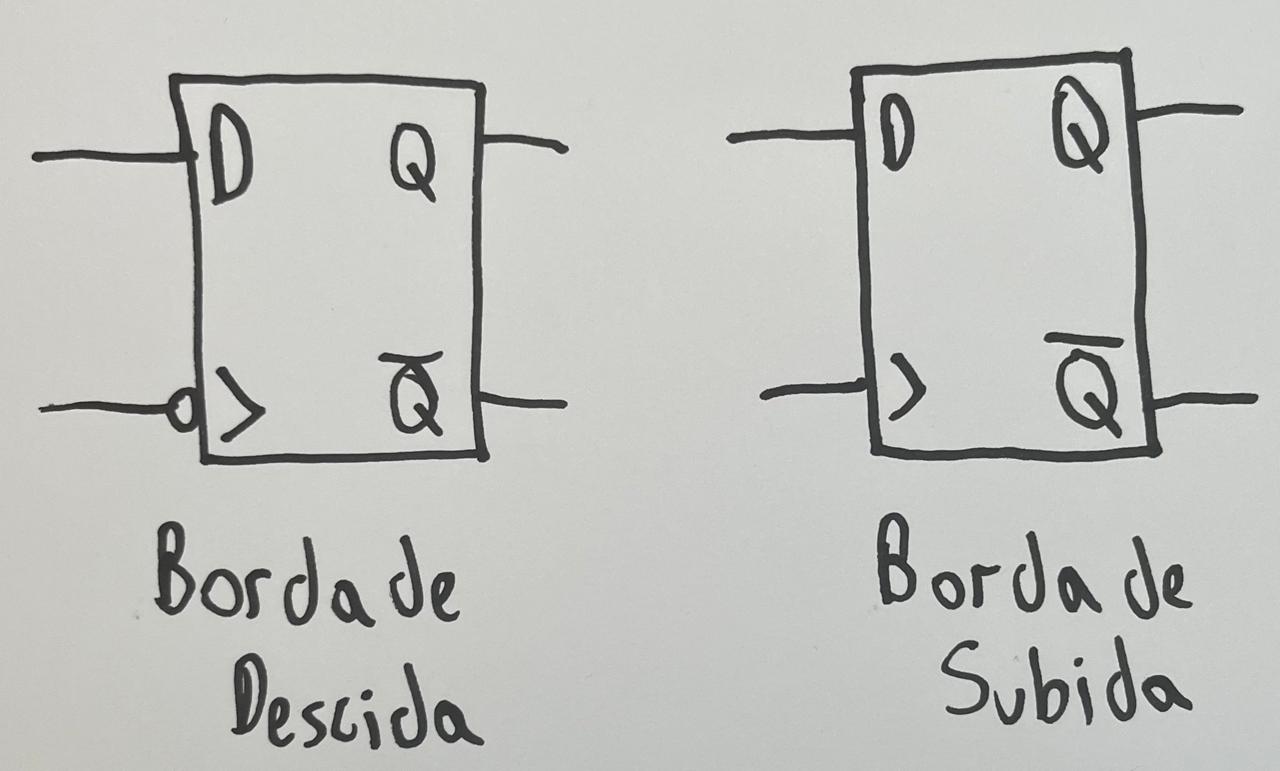 D Q
Q̅
Borda de
Descida
D Q
Q̅
Borda de
Subida